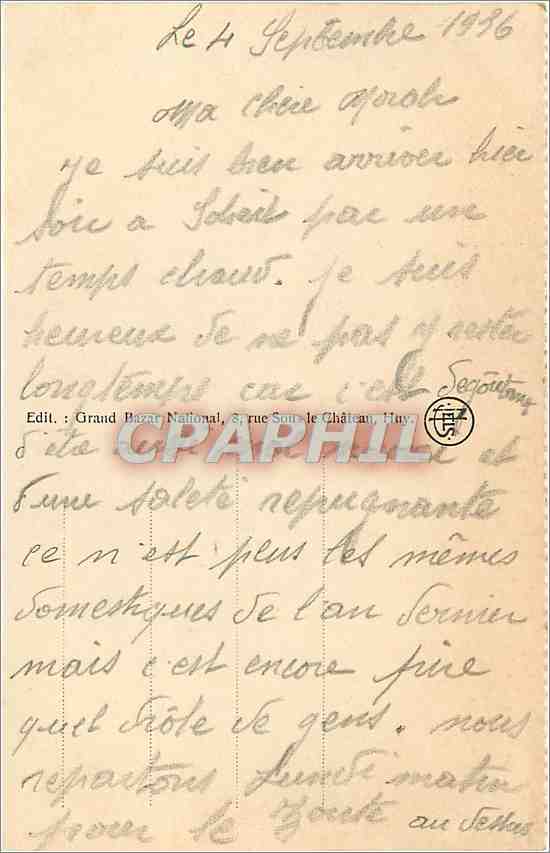 Le 4 Septembre 1936
Ma chère
Je suis bien arriver hier
soir a par un
temps chaud. Je suis
heureux de ne pas y rester
longtemps car c'est degôutant
Edit. : Grand Bazar National, 8, rue Sous le Château, Huy.
NELS
CPAPHIL
d'être et
d'une saleté repugnante
ce n'est plus les mêmes
domestiques de l'an dernier
mais c'est encore pire
quel drôle de gens. nous
repartons Lundi matin
pour le Zoute au dessus